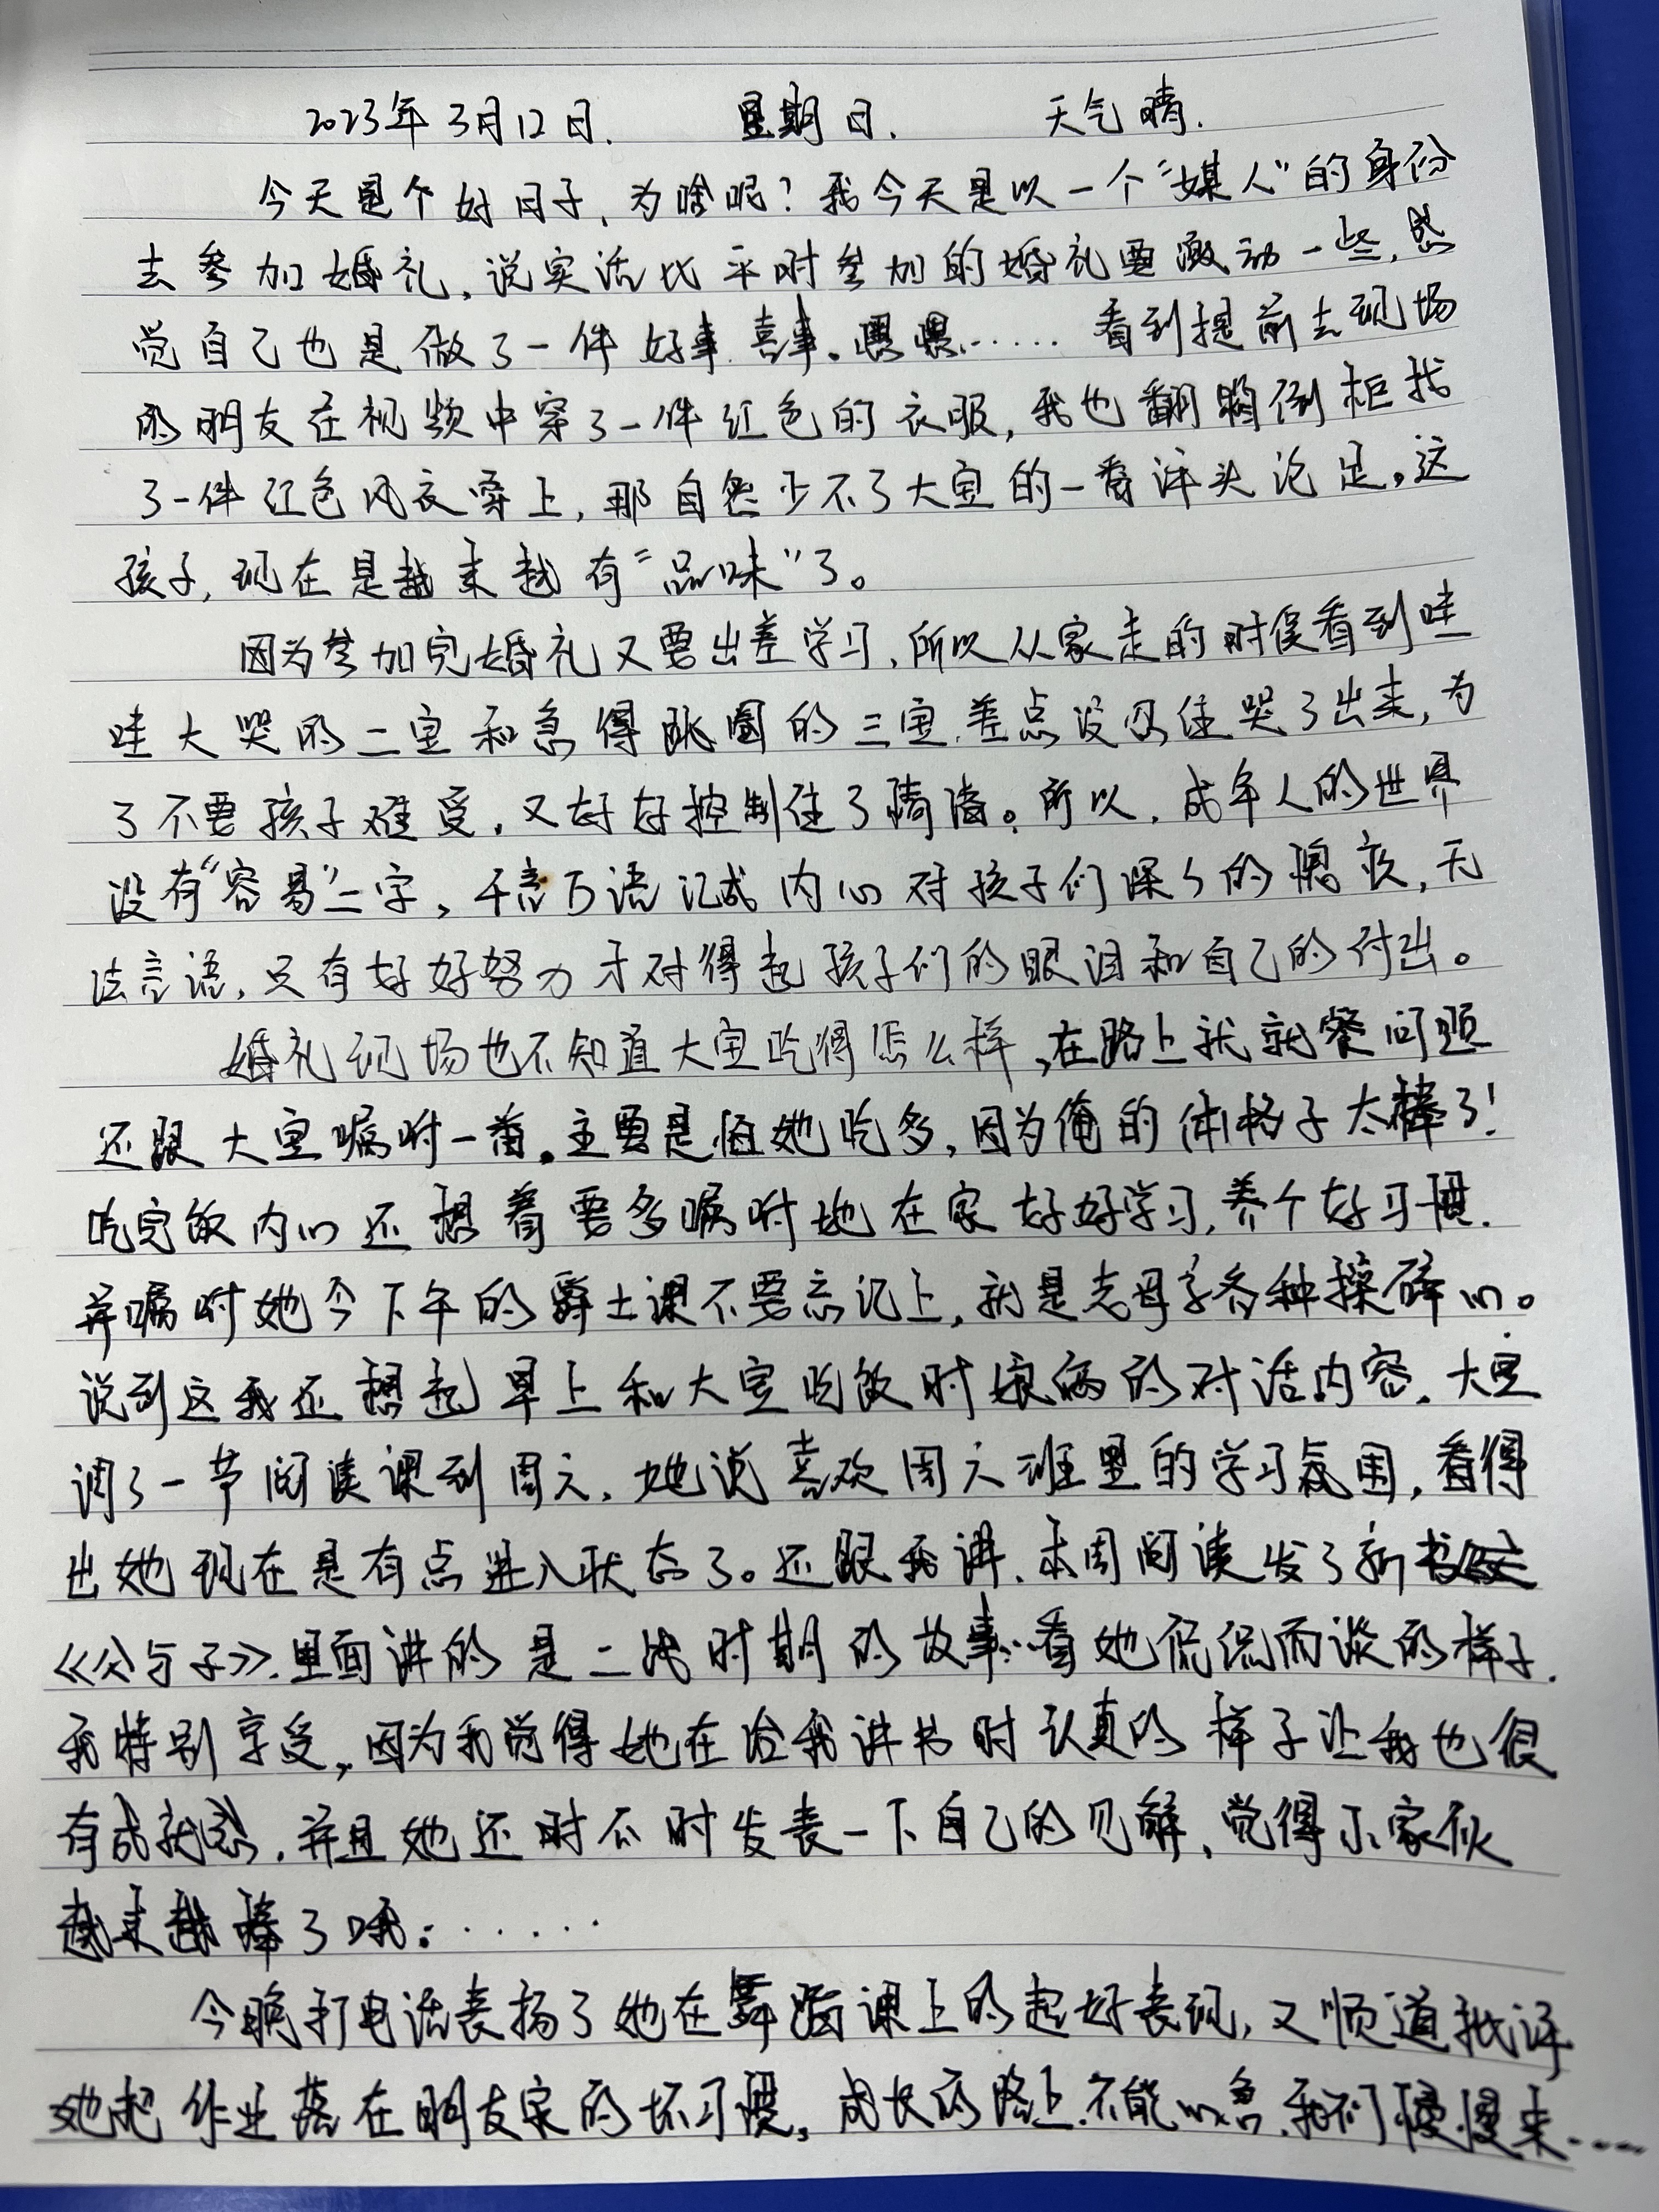 2023年3月12日. 星期日. 天气晴.
今天是个好日子,为啥呢?我今天是以一个“媒人”的身份
去参加婚礼,说实话比平时参加的婚礼要激动一些,感
觉自己也是做了一件好事.喜事。嘿嘿……看到提前去现场
的朋友在视频中穿了一件红色的衣服,我也翻箱倒柜找
了一件红色风衣穿上,那自然少不了大宝的一番评头论足。这
孩子,现在是越来越有“品味”了。
因为参加完婚礼又要出差学习,所以从家走的时候看到哇
哇大哭的二宝和急得跳圈的三宝.差点没忍住哭了出来,为
了不要孩子难受,又好好控制住了情绪。所以,成年人的世界
没有“容易”二字,千言万语汇成内心对孩子们深深的愧疚,无
法言语,只有好好努力才对得起孩子们的眼泪和自己的付出。
婚礼现场也不知道大宝吃得怎么样,在路上就就餐问题
还跟大宝嘱咐一番。主要是怕她吃多,因为俺的体格子太棒了!
吃完饭内心还想着要多嘱咐她在家好好学习,养个好习惯.
并嘱咐她今下午的爵士课不要忘记上,就是老母亲各种操碎心。
说到这我还想起早上和大宝吃饭时娘俩的对话内容.大宝
调了一节阅读课到周六,她说喜欢周六班里的学习氛围,看得
出她现在是有点进入状态了。还跟我讲.本周阅读发了新书
《父与子》.里面讲的是二战时期的故事.看她侃侃而谈的样子.
我特别享受,因为我觉得她在给我讲书时认真的样子让我也很
有成就感.并且她还时不时发表一下自己的见解,觉得小家伙
越来越棒了哦:······
今晚打电话表扬了她在舞蹈课上的起好表现,又顺道批评
她把作业落在朋友家的坏习惯,成长的路上.不能心急.我们慢慢来……